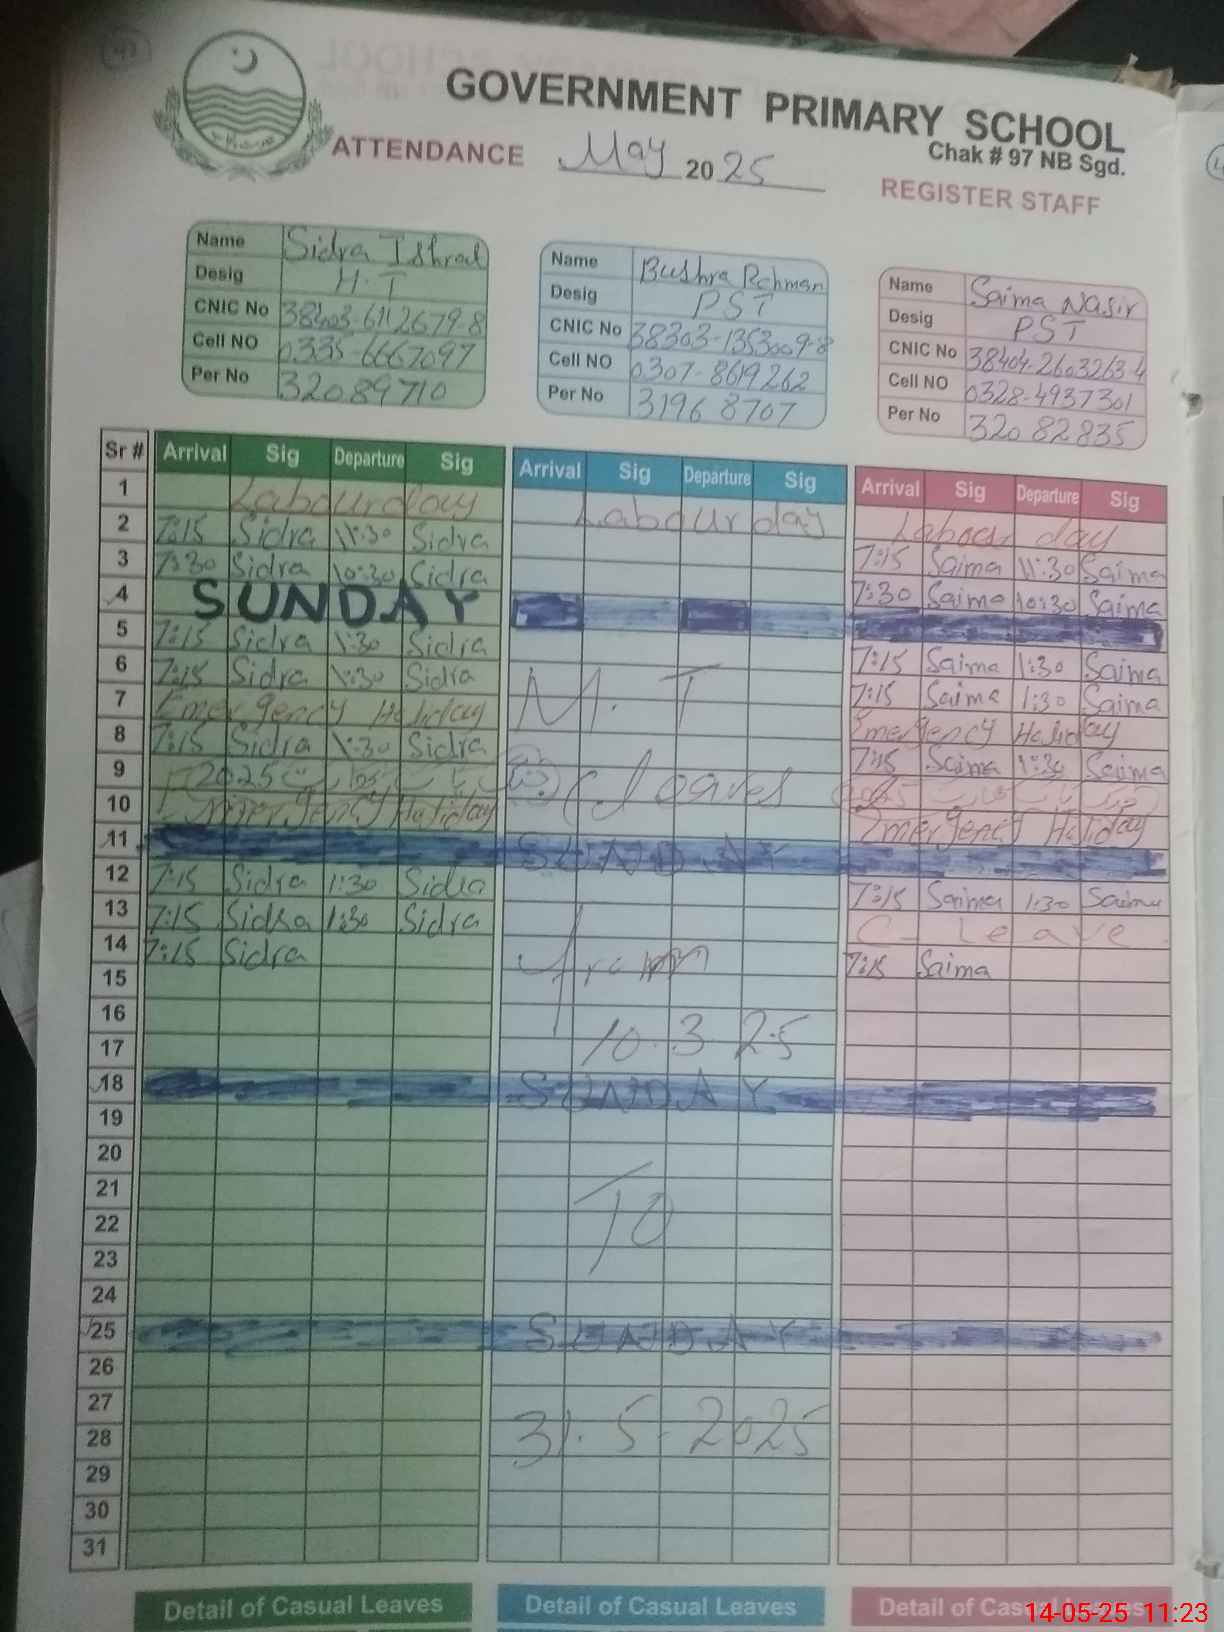 GOVERNMENT PRIMARY SCHOOL
Chak # 97 NB Sgd.
ATTENDANCE May 2025
REGISTER STAFF
Name Sidra Ishrat
Desig H.T
CNIC No 38403-6112679-8
Cell NO 0335-6667097
Per No 32089710
Name Bushra Rehman
Desig PST
CNIC No 38303-1353009-8
Cell NO 0307-8619262
Per No 31968707
Name Saima Nasir
Desig PST
CNIC No 38404-2603263-4
Cell NO 0328-4937301
Per No 32082835
Sr # Arrival Sig Departure Sig Arrival Sig Departure Sig Arrival Sig Departure Sig
1 Labour day Labour day Labour day
2 7:15 Sidra 11:30 Sidra 7:15 Saima 11:30 Saima
3 7:30 Sidra 10:30 Sidra 7:30 Saima 10:30 Saima
4 SUNDAY
5 7:15 Sidra 1:30 Sidra 7:15 Saima 1:30 Saima
6 7:15 Sidra 1:30 Sidra M.T 7:15 Saima 1:30 Saima
7 Emergency Holiday Emergency Holiday
8 7:15 Sidra 1:30 Sidra 7:15 Saima 1:30 Saima
9 2025 leaves 2025
10 Emergency Holiday Emergency Holiday
11 SUNDAY
12 7:15 Sidra 1:30 Sidra 7:15 Saima 1:30 Saima
13 7:15 Sidra 1:30 Sidra C- Leave
14 7:15 Sidra from 7:15 Saima
15
16 10.3.25
17
18 SUNDAY
19
20
21
22 To
23
24
25 SUNDAY
26
27
28 31.5-2025
29
30
31
Detail of Casual Leaves Detail of Casual Leaves Detail of Casual Leaves
14-05-25 11:23